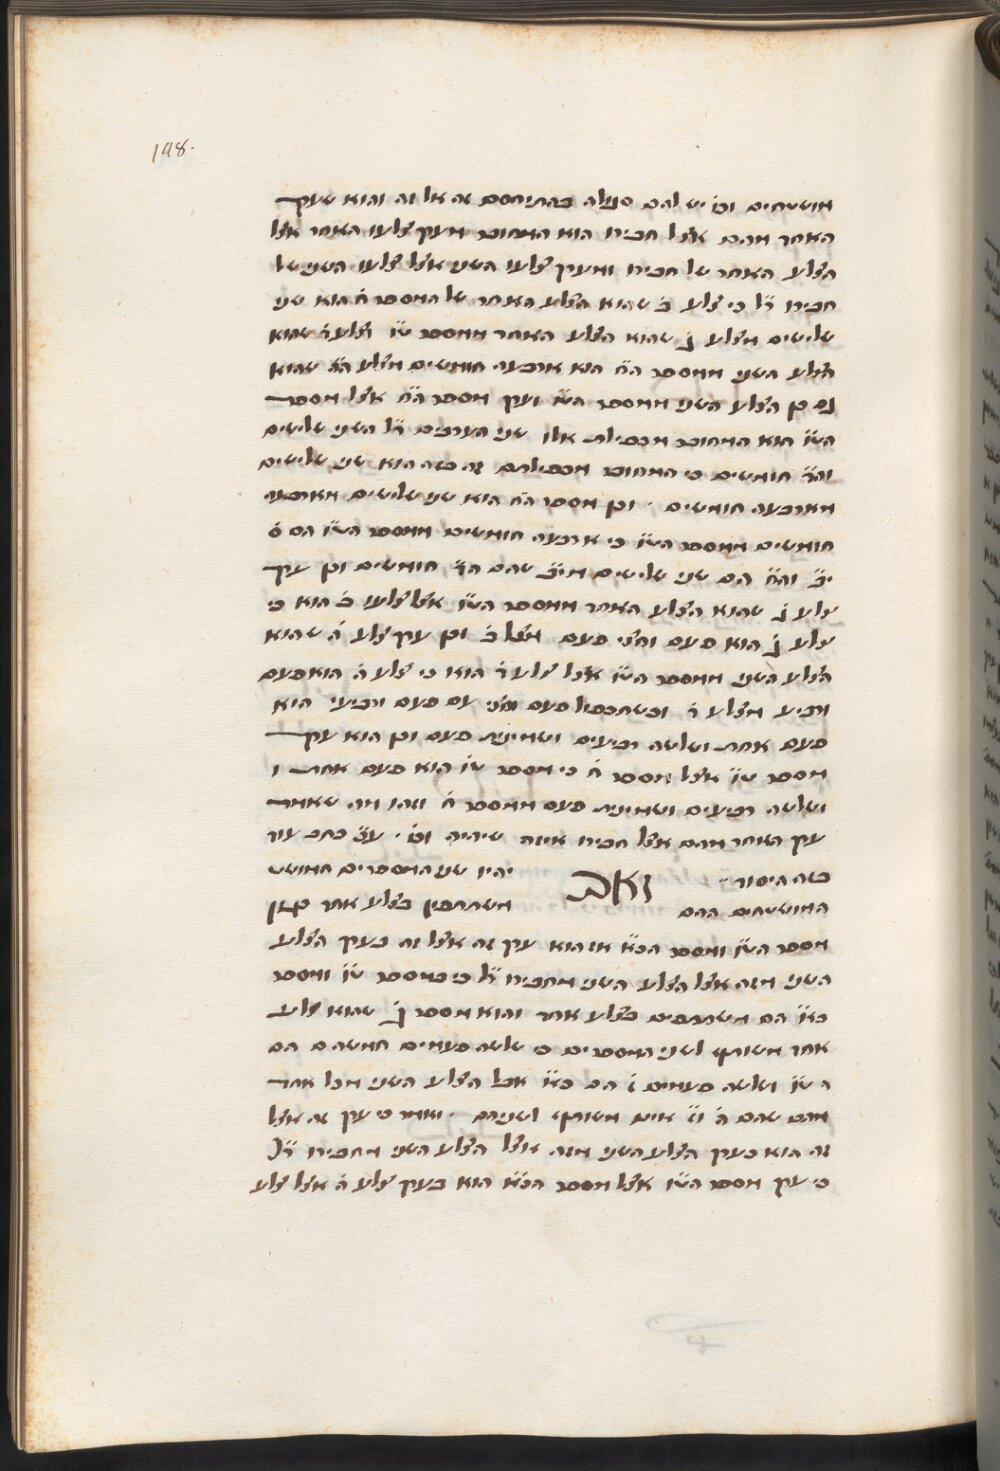 148.
מושטחים וכו׳ יש להם סגולה בהתיחסם זה אל זה והוא שערך
האחד מהם אצל חבירו הוא המחובר מערך צלעו האחד אצל
הצלע האחד של חבירו ומערך צלעו השני אצל צלעו השני של
חבירו ר״ל כי צלע ב̇ שהוא הצלע האחד של המספר ח̇ הוא שני
שלישים מצלע ג̇ שהוא הצלע האחד ממספר ט״ו וצלע ד̇ שהוא
הצלע השני ממספר הח̇ הוא ארבעה חומשים מצלע הה̇ שהוא
גם כן הצלע השני ממספר הט״ו וערך מספר הח̇ אצל מספר
הט״ו הוא המחובר מכפילת אלו שני הערכים ר״ל השני שלישים
והד̇ חומשים כי המחובר מכפילתם זה בזה הוא שני שלישים
מארבעה חומשים . וכן מספר הח̇ הוא שני שלישים מארבעה
חומשים ממספר הט״ו כי ארבעה חומשים ממספר הט״ו הם
י״ב והח̇ הם שני שלישים מי״ב שהם הד̇ חומשים וכן ערך
צלע ג̇ שהוא הצלע האחד ממספר הט״ו אצל צלעו ב̇ הוא כי
צלע ג̇ הוא פעם וחצי פעם מצלע ב̇ וכן ערך צלע ה̇ שהוא
הצלע השני ממספר הט״ו אצל צלע ד̇ הוא כי צלע ה̇ הוא פעם
ורביע מצלע ד̇ וכשתכפול פעם וחצי עם פעם ורביעי הוא
פעם אחת ושלשה רביעים ושמינית פעם וכן הוא ערך
מספר ט״ו אצל מספר ח̇ כי מספר ט״ו הוא פעם אחת ו
ושלשה רביעים ושמינית פעם ממספר ח̇ וזהו מה שאמר
ערך האחד מהם אצל חבירו איזה שיהיה וכו׳ . ע״כ כתב עוד
בזה היסוד
זא״ב
יהיו שני המספרים המושט
המושטחים ההם
משתתפין בצלע אחד כגון
מספר הט״ו ומספר הכ״א אז הוא ערך זה אצל זה כערך הצלע
השני מזה אצל הצלע השני מחבירו ר״ל כי במספר ט״ו ומספר
כ״א הם משתתפים בצלע אחד והוא מספר ג̇ שהוא צלע
אחד משותף לשני המספרים כי שלשה פעמים חמשה הם
ט״ו ושלשה פעמים ז̇ הם כ״א אבל הצלע השני מכל אחד
מהם שהם ה̇ וז̇ אינם משותף לשניהם . ואמר כי ערך זה אצל
זה הוא כערך הצלע השני מזה אצל הצלע השני מחבירו ר״ל
כי ערך מספר הט״ו אצל מספר הכ״א הוא כערך צלע ה̇ אצל צלע